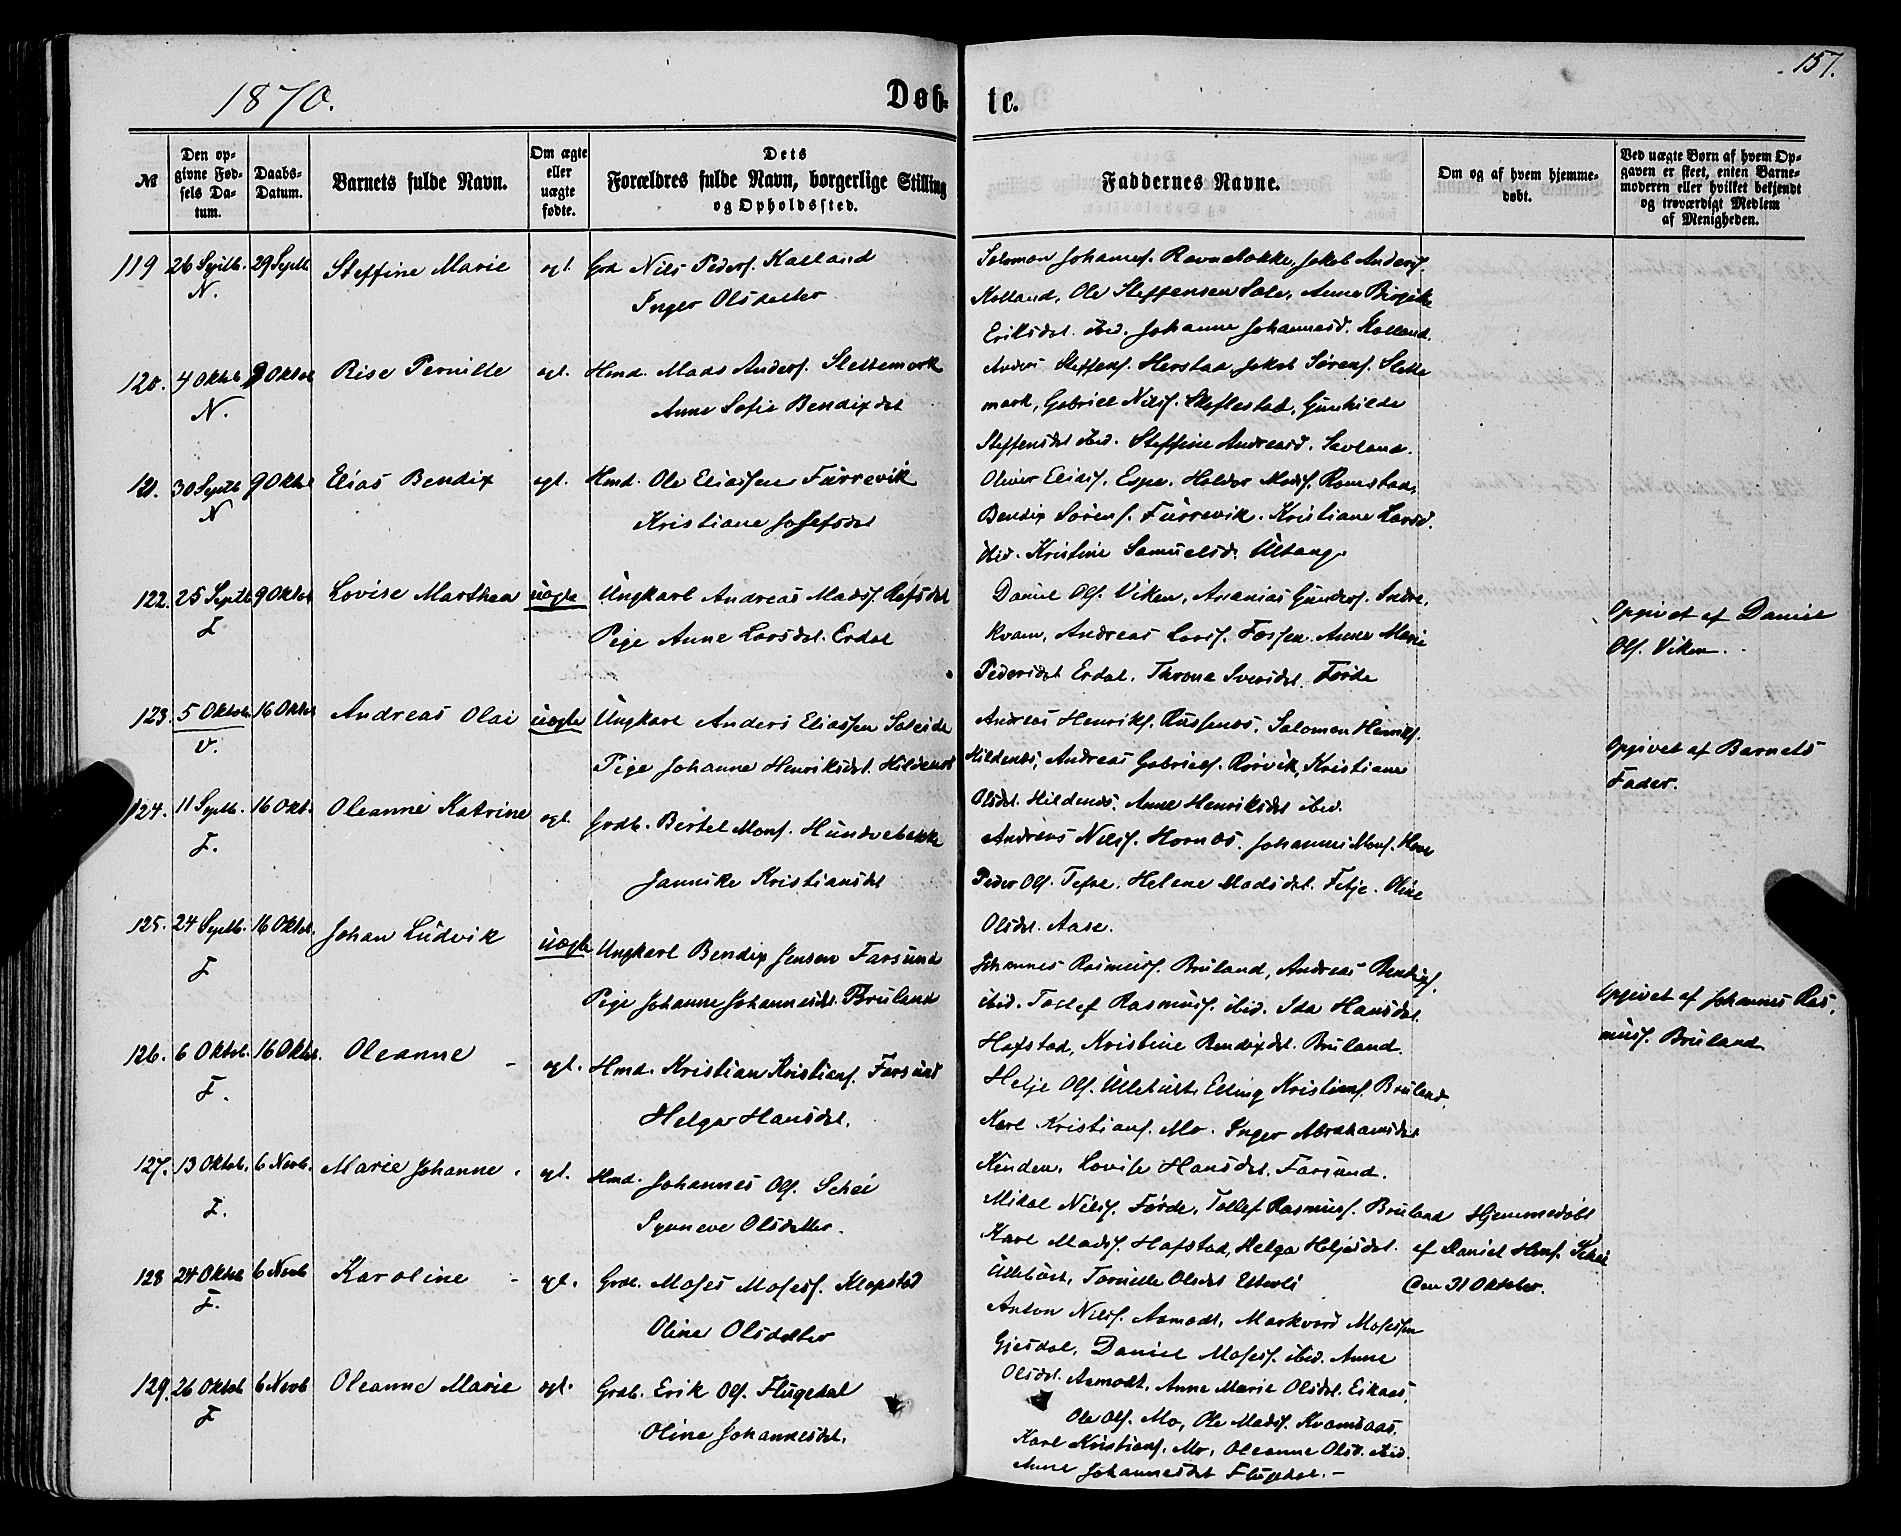 157.
1870.
Døb-
te.
№
Den op-
givne Fød-
sels Da-
tum.
Daabs-
Datum.
Barnets fulde Navn.
Om ægte
eller
uægte
fødte.
Dets
Forældres fulde Navn, borgerlige Stilling
og Opholdssted.
Faddernes Navne.
Om og af hvem hjemme-
døbt.
Ved uægte Børn af hvem Op-
gaven er skeet, enten Barne-
moderen eller hvilket bekjendt
og troværdigt Medlem
af Menigheden.
119 26 Septb. 29 Septb Steffine Marie egt. Grd Nils Peders. Kalland
N.
Inger Olsdatter
Salomon Johannes. Ravnebakke, Jakob Anders.
Kalland, Ole Steffensen Sole, Anne Birgitte
Eriksdt. ibid. Johanne Johannesd. Kalland.
120. 4 Oktob 9 Oktob Rise Pernille egt. Hmd. Mads Anders. Slettemark
N.
Anne Sofie Bendixdt
Anders Steffens. Herstad, Jakob Sørens. Slette
mark, Gabriel Nils. Skeflestad, Gunhilde
Steffensdt ibid. Steffine Andreasd. Sevland.
121. 30 Septb 9 Oktob Elias Bendix egt. Hmd. Ole Eliassen Furrevik
N
Kristiane Josefsdt
Oliver Elias. Espe. Haldor Mads. Ramstad,
Bendix Sørens. Furrevik. Kristiane Larsd.
ibid. Kristine Samuelsd. Utvang.
122. 25 Septb 9 Oktob Lovise Marthea uægte Ungkarl Andreas Mads. Refsdal
F
Pige Anne Larsdt. Erdal
Daniel Ols. Viken, Ananias Gunders. Indre,
kvam, Andreas Lars. Fossen. Anne Marie
Pedersdt. Erdal. Throna Sversdt. Førde
Opgivet af Daniel
Ols. Viken.
123. 5 Oktob. 16 Oktob Andreas Olai uægte Ungkarl Anders Eliassen Soleide
V.
Pige Johanne Henriksdt. Hildenes
Andreas Henriks. Russenes. Salomon Henriks.
Hildenes, Andreas Gabriels. Rørvik, Kristiane
Olsdt. Hildenes. Anne Henriksdt ibid.
Opgivet af Barnets
Fader.
124. 11 Septb. 16 Okt. Oleanne Katrine egt. Grdb. Bertel Mons. Hundvebakke
F.
Jannike Kristiansdt
Andreas Nils. Hornes. Johannes Mons. Hove
Peder Ols. Tefre. Helene Madsdt. Fitje. Oline
Olsdt. Aase.
125. 24 Septb. 16 Oktob. Johan Ludvik uægte Ungkarl Bendix Jensen Farsund
F
Pige Johanne Johannesdt. Bruland
Johannes Rasmus. Bruland, Andreas Bendix.
ibid. Tollef Rasmus. ibid. Ida Hansdt.
Hafstad, Kristine Bendixdt. Bruland.
Opgivet af Johannes Ras,
mus. Bruland
126. 6 Oktob. 16 Oktob. Oleanne - egt. Hmd. Kristian Kristians. Farsund
F.
Helga Hansdt.
Helje Ols. Ulltbult. Elling Kristians. Bruland.
Karl Kristians. Mo. Inger Abrahamsdt
Kinden. Lovise Hansdt. Farsund.
127. 13 Oktob. 6 Novb. Marie Johanne. egt. Hmd. Johannes Ols. Schei
F.
Synneve Olsdatter.
Mikal Nils. Førde, Tollef Rasmus. Bruland
Karl Mads. Hafstad, Helga Heljesdt.
Olsdt
Hjemmedøbt
af Daniel Hans. Schei
den 31 Oktober.
128 24 Oktob 6 Novb Karoline - egt. Grdb. Moses Moses. Klopstad
F.
Oline Olsdatter
Anton Nils. Aamodt, Markvard Mosessen
Gjesdal, Daniel Moses. ibid. Anne
Olsdt. Aamodt, Anne Marie Olsdt. Eikaas,
129. 26 Oktob 6 Novb Oleanne Marie egt. Grdb. Erik Ols. Flugedal
F
Oline Johannesdt.
Ole Ols. Mo, Ole Mads. Kvamsaas.
Karl Kristians. Mo, Oleanne Olsd. ibid.
Anne Johannesdt Flugedal. -